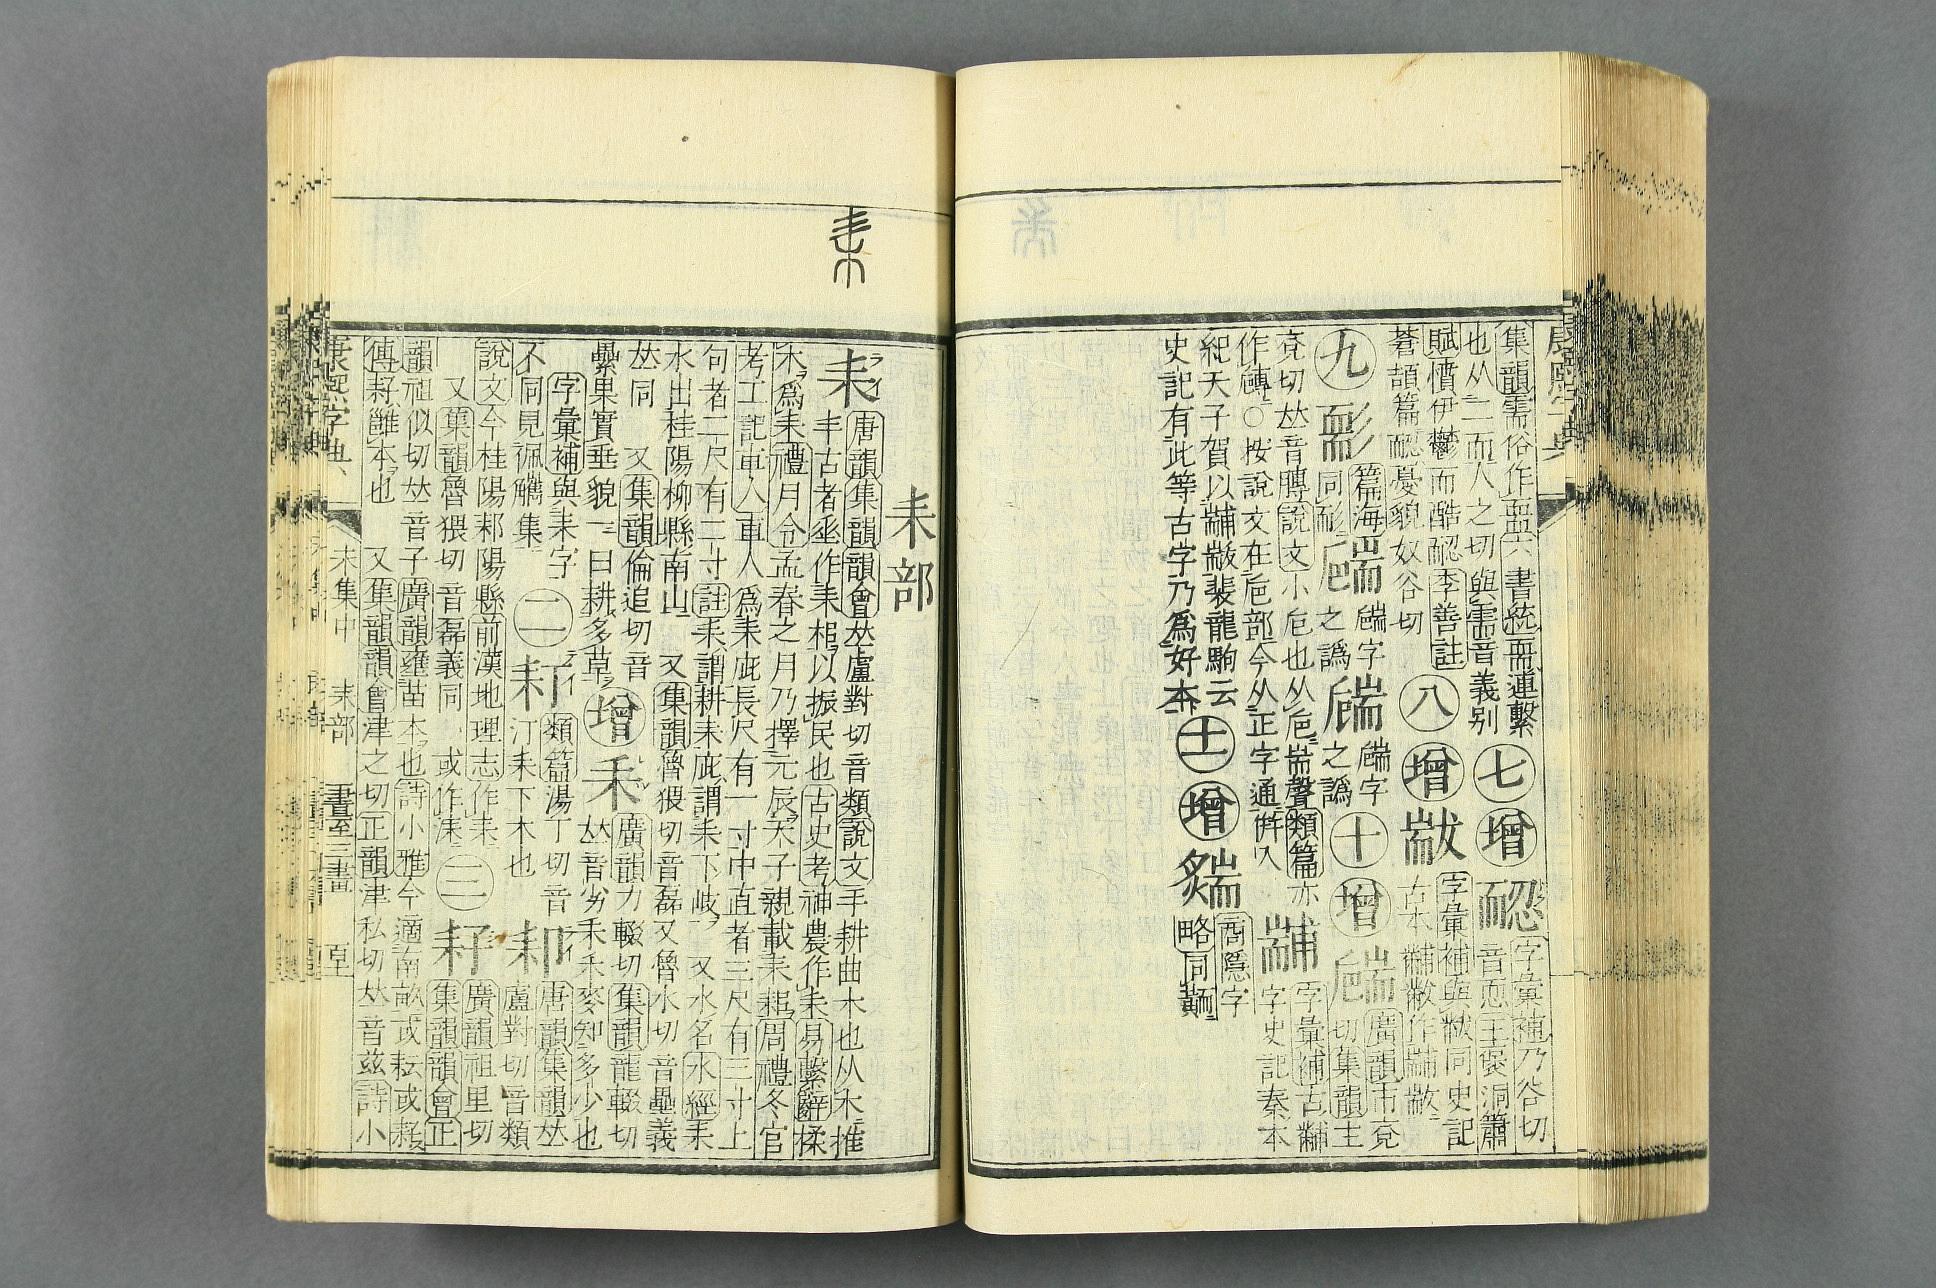 集韻需俗作
也从二而人之切與需音義別
七
增
字彙補乃谷切
音恧王褒洞簫
賦憤伊鬱而酷
李善註
蒼頡篇
憂貌奴谷切
八
增
字彙補與黻同史記
古本黼黻作
九
篇海
同耏
字
之譌
字
之譌
十
增
廣韻市兗
切集韻主
兗切𠀤音膞說文小巵也从巵耑聲類篇亦
作磚○按說文在巵部今从正字通倂入
黼
字彙補古黼
字史記秦本
紀天子賀以黼黻裴龍駒云
史記有此等古字乃爲好本
士
增
商隱字
略同顚
耒
耒部
耒
唐韻集韻韻會𠀤盧對切音類說文手耕曲木也从木推
丰古者垂作耒耜以振民也古史考神農作耒易繫辭揉
木爲耒禮月令孟春之月乃擇元辰天子親載耒耜周禮冬官
考工記車人車人爲耒庇長尺有一寸中直者三尺有三寸上
句者二尺有二寸註耒謂耕耒庇謂耒下岐 又水名水經耒
水出桂陽柳縣南山 又集韻魯猥切音磊又魯水切音壘義
𠀤同 又集韻倫追切音
纍果實垂貌一曰耕多草
增
禾
廣韻力輟切集韻龍輟切
𠀤音劣禾禾麥知多少也
字彙補與耒字
不同見佩觿集
二
耓
類篇湯丁切音
汀耒下木也
唐韻集韻𠀤
盧對切音類
說文今桂陽耒陽縣前漢地理志作耒
又集韻魯猥切音磊義同 或作
三
耔
廣韻祖里切
集韻韻會正
韻祖似切𠀤音子廣韻壅苗本也詩小雅今適南畝或耘或耔
傳耔雝本也 又集韻韻會津之切正韻津私切𠀤音兹詩小
康熙字典
未集中
耒部
畫至三畫